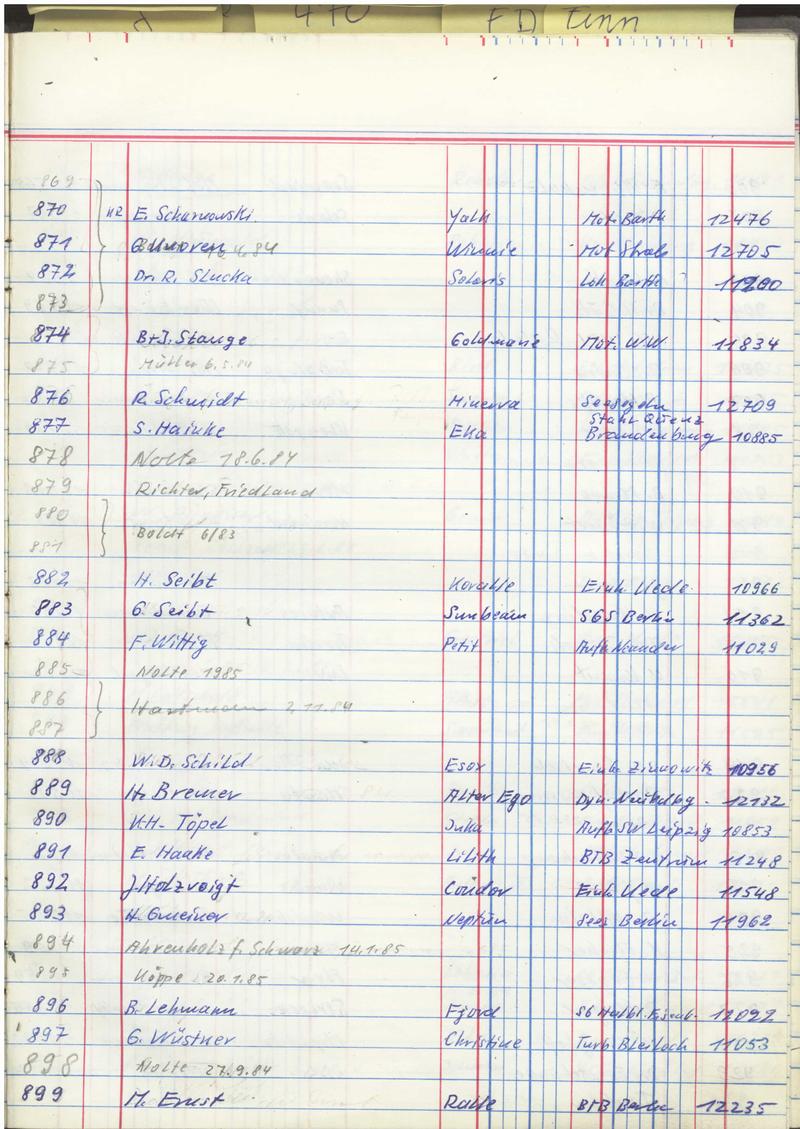 470 FD Finn
869
870 H2 E. Scharnowski. Yalk Mot. Barth 12476
871 G. Winnie Mot Strals 12705
872 Dr. R. Slucka Solaris Lok Barth 11200
873
874 B+J. Stange Goldmarie Mot. WW 11834
875 Müller 6.5.84
876 R. Schmidt Minerva Seesegeln 12709
877 S. Hainke Elka Stahl Quenz Brandenburg 10885
878 Nolte 18.6.84
879 Richter, Friedland
880
881 Boldt 6/83
882 H. Seibt Koralle Einh. Uede. 10966
883 G. Seibt Sunbeam SGS Berlin 11362
884 F. Wittig Petit Aufb. 11029
885 Nolte 1985
886 Hartmann 2.11.84
887
888 W.D. Schild Esox Einh. Zinnowitz 10956
889 H. Bremer Alter Ego Dyn. 12132
890 K-H. Töpel Julka Aufb SW Leipzig 10853
891 E. Haake Lilith BTB Zentrum 11248
892 J. Holzvoigt Condor Einh Uede 11548
893 H. Gmeiner Neptun Sees Berlin 11962
894 Ahrenholz f. Schwarz 14.1.85
895 Köppe 20.1.85
896 B. Lehmann Fjord SG 12092
897 G. Wüstner Christine Turb. Bleiloch 11053
898 Nolte 27.9.84
899 M. Ernst Ralle BTB Berlin 12235